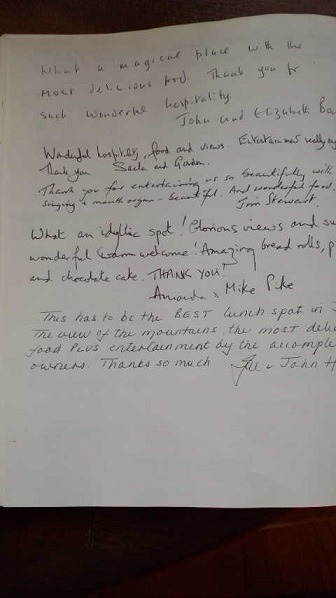 What a magical place with the
most delicious food. Thank you for
such wonderful hospitality.
John and Elizabeth
Wonderful hospitality, food and views. Entertainment really
Thank you and Gordon.
Thank you for entertaining us so beautifully with
singing & mouth organ - beautiful. And wonderful food.
Jim Stewart.
What an idyllic spot! Glorious views and
wonderful warm welcome! Amazing bread rolls,
and chocolate cake. THANK YOU!
Amanda & Mike Pike
This has to be the BEST lunch spot in
The view of the mountains, the most
food PLUS entertainment by the
owners. Thanks so much & John H